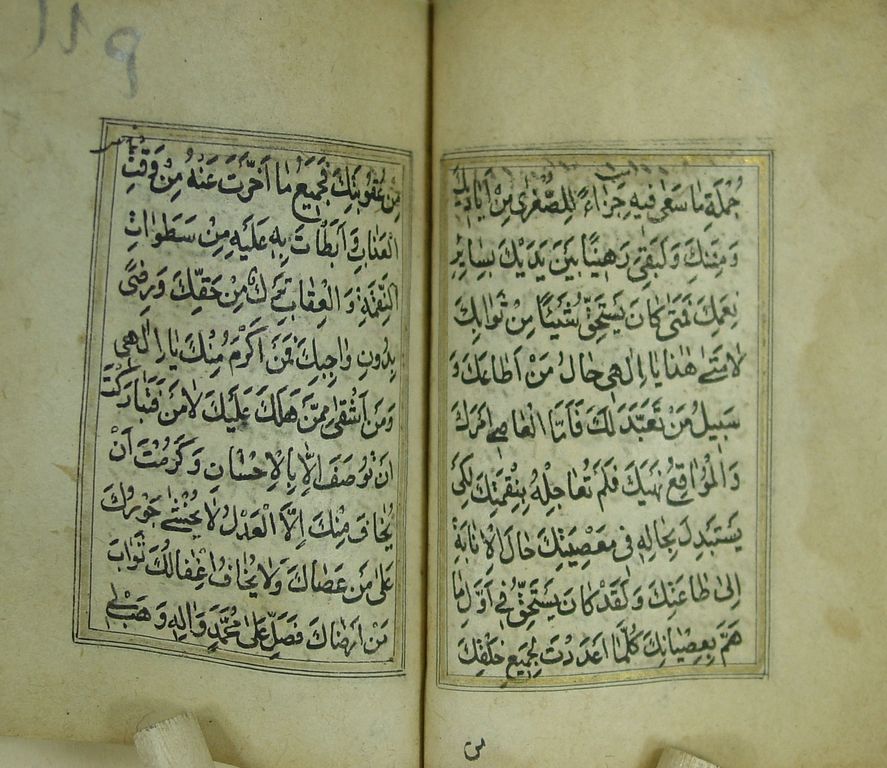 جُمْلَةِ مَا سَعَىٰ فِيهِ جَزَاءً لِلصُّغْرَىٰ مِنْ اَيَادِيكَ
وَمِنَنِكَ وَلَبَقِيَ رَهِينًا بَيْنَ يَدَيْكَ بِسَايِرِ
نِعَمِكَ فَمَتَىٰ كَانَ يَسْتَحِقُّ شَيْئًا مِنْ ثَوَابِكَ
لَا مَتىٰ هٰذَا يَا اِلٰهِي حَالُ مَنْ اَطَاعَكَ وَ
سَبِيلُ مَنْ تَعَبَّدَ لَكَ فَاَمَّا الْعَاصِي اَمْرَكَ
وَالْمُوَاقِعُ نَهْيَكَ فَلَمْ تُعَاجِلْهُ بِنِقْمَتِكَ لِكَيْ
يَسْتَبْدِلَ بِحَالِهِ فِي مَعْصِيَتِكَ حَالَ الْاِنَابَةِ
اِلىٰ طَاعَتِكَ وَلَقَدْ كَانَ يَسْتَحِقُّ فِي اَوَّلِ مَا
هَمَّ بِعِصْيَانِكَ كُلَّمَا اَعْدَدْتَ لِجَمِيعِ خَلْقِكَ
من
مِنْ عُقُوبَتِكَ فَجَمِيعُ مَا اَخَّرْتَ عَنْهُ مِنْ وَقْتِ
الْعَذَابِ وَاَبْطَأْتَ بِهِ عَلَيْهِ مِنْ سَطَوَاتِ
النَّقِمَةِ وَالْعِقَابِ تَرْكٌ مِنْ حَقِّكَ وَرِضًى
بِدُونِ وَاجِبِكَ فَمَنْ اَكْرَمُ مِنْكَ يَا اِلٰهِي
وَمَنْ اَشْقىٰ مِمَّنْ هَلَكَ عَلَيْكَ لَا مَنْ فَتَبَارَكْتَ
اَنْ تُوصَفَ اِلَّا بِالْاِحْسَانِ وَكَرُمْتَ اَنْ
يُخَافَ مِنْكَ اِلَّا الْعَدْلُ لَا يُخْشىٰ جَوْرُكَ
عَلىٰ مَنْ عَصَاكَ وَلَا يُخَافُ اِغْفَالُكَ ثَوَابَ
مَنْ اَرْضَاكَ فَصَلِّ عَلىٰ مُحَمَّدٍ وَاٰلِهِ وَهَبْ لِي